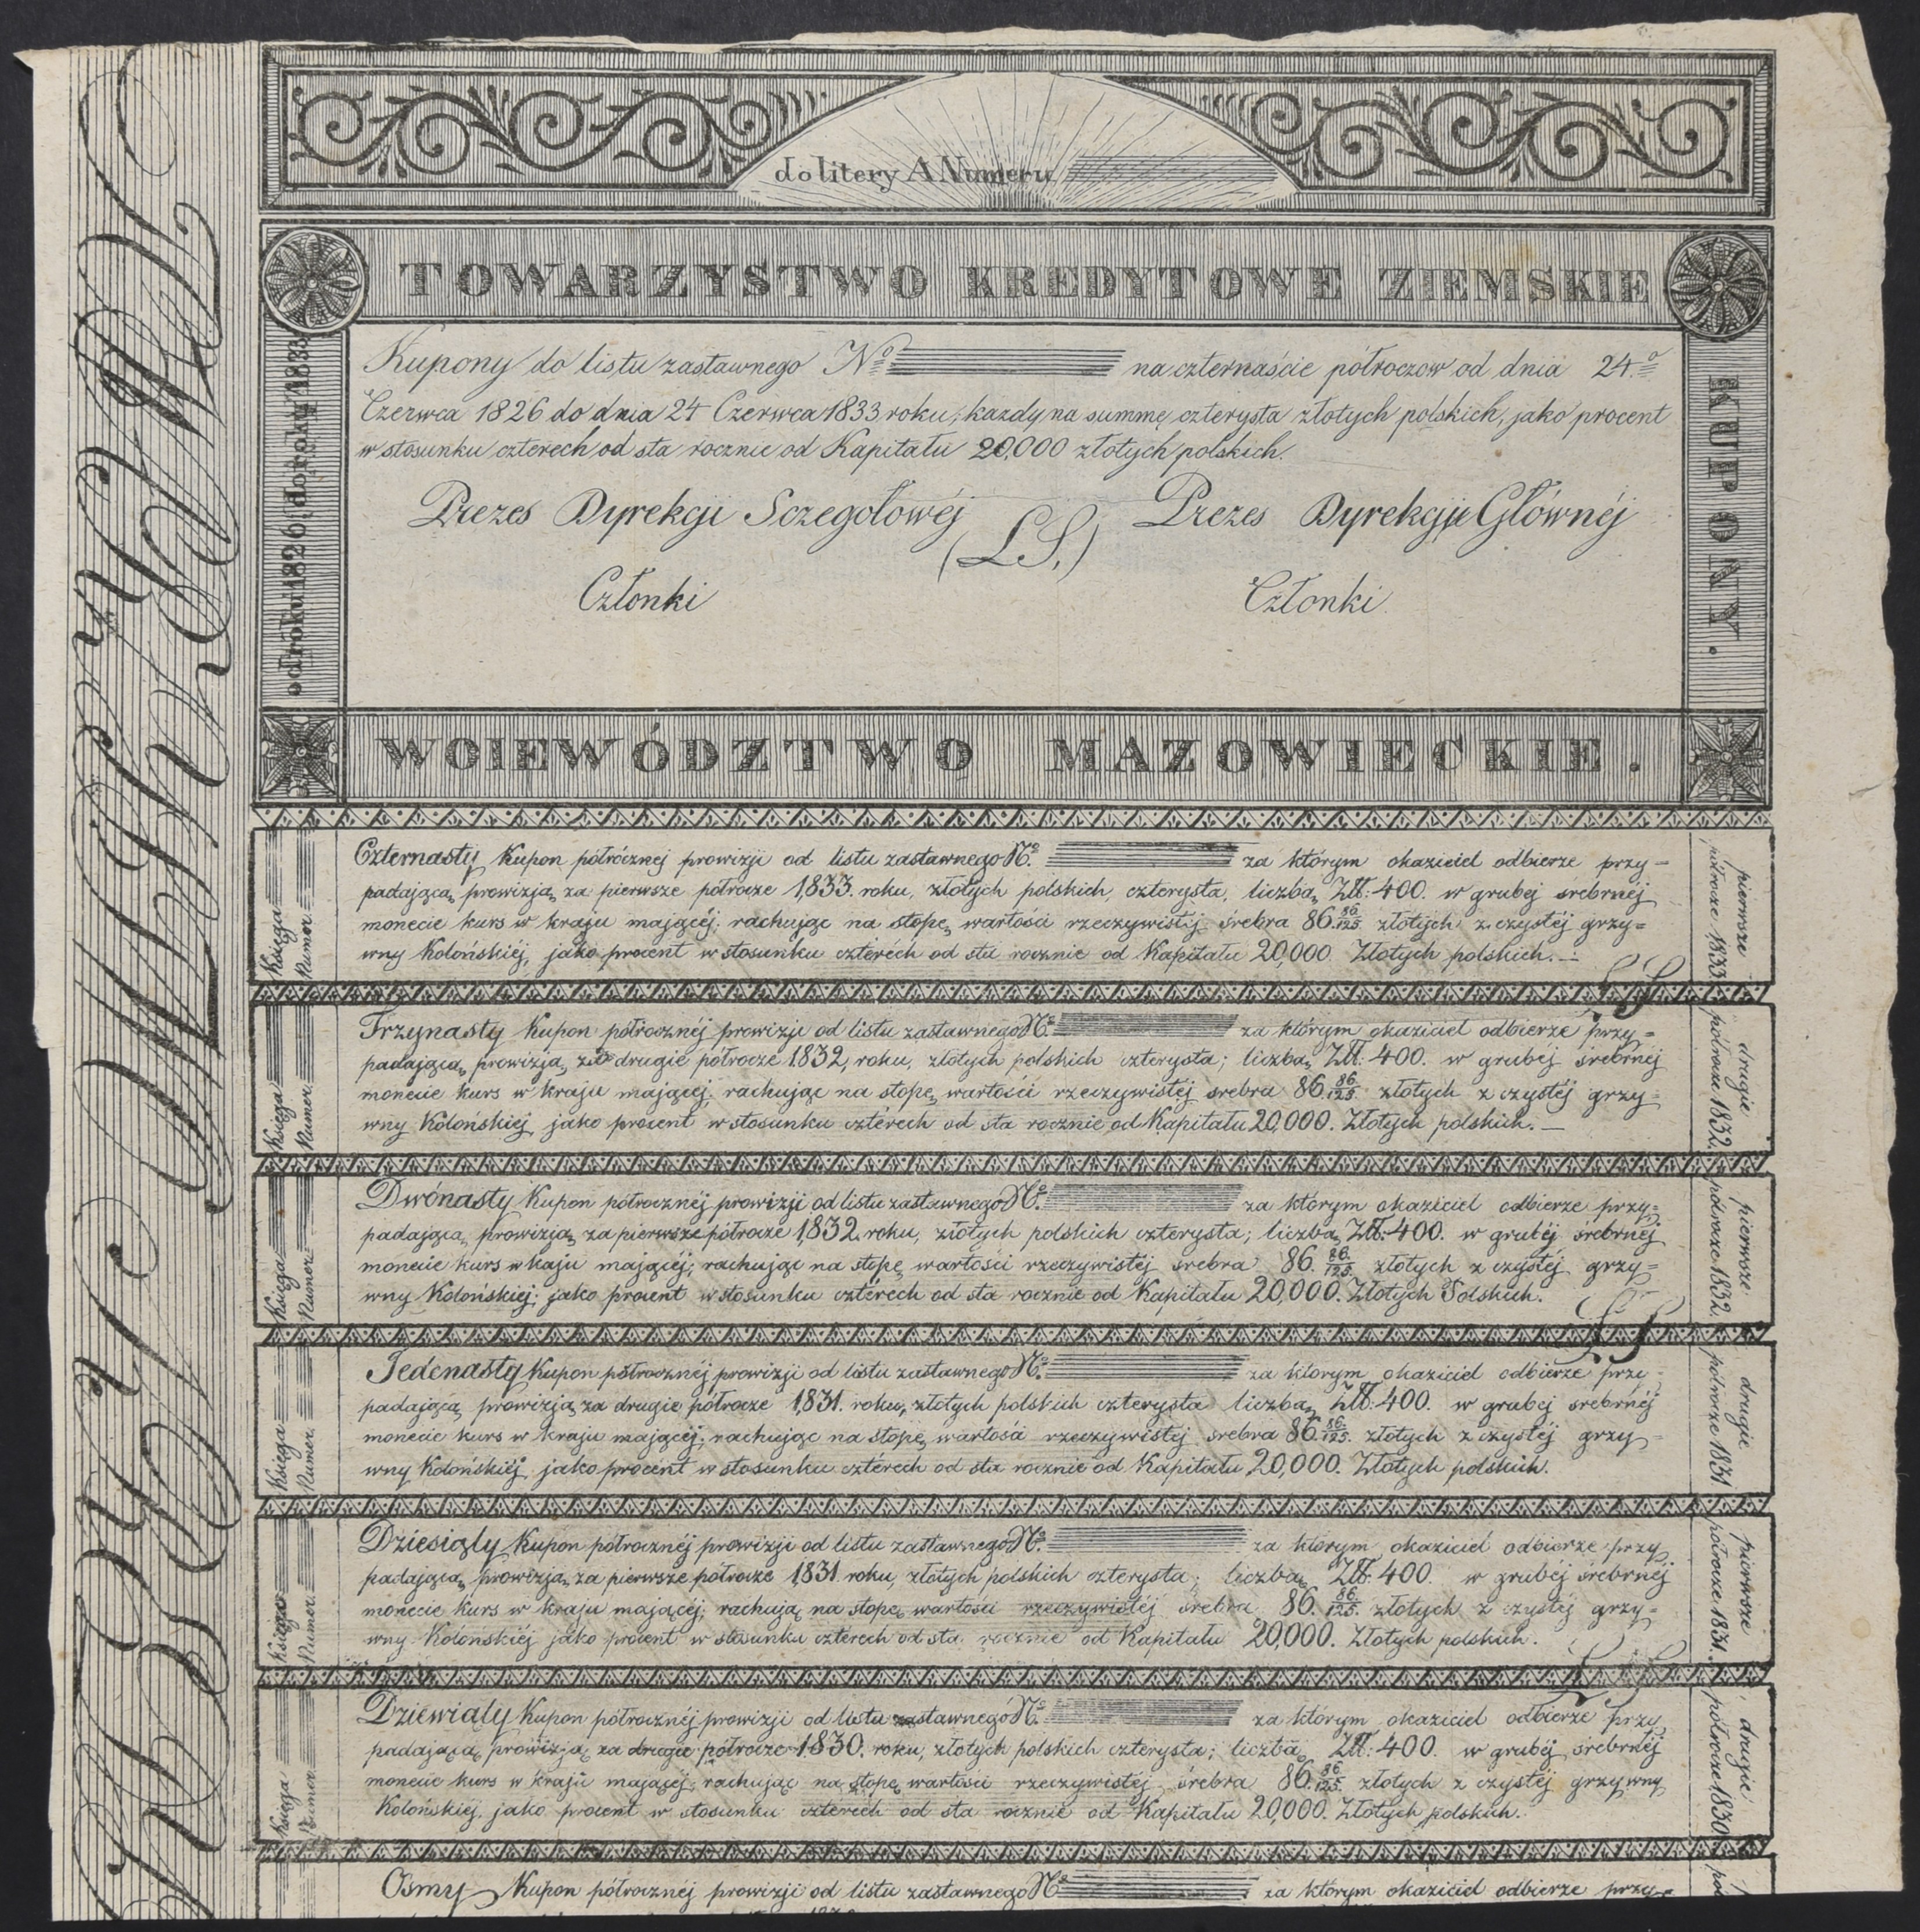 do litery A Numeru
TOWARZYSTWO KREDYTOWE ZIEMSKIE
od roku 1826 do roku 1833
KUPONY.
Kupony do listu zastawnego Nº na czternaście półroczow od dnia 24.º
Czerwca 1826 do dnia 24 Czerwca 1833 roku; kazdy na summę czterysta złotych polskich, jako procent
w stosunku czterech od sta rocznie od Kapitału 20,000 złotych polskich.
Prezes Dyrekcji Sczegołowéj
Prezes Dyrekcji Głównéj
(L.S.)
Członki
Członki
WOIEWÓDZTWO MAZOWIECKIE.
Księga
Numer
Czternasty Kupon półrócznej prowizji od listu zastawnego Nº za którym okaziciel odbierze przy=
padającą prowizją za pierwsze półrocze 1,833. roku, złotych polskich, czterysta, liczbą Złł: 400. w grubej srebrnéj
monecie kurs w kraju mającéj; rachując na stopę wartości rzeczywistéj śrebra 86.86/125. złotych z czystéj grzy=
wny Kolońskiéj, jako procent w stosunku czterech od sta rocznie od Kapitału 20,000. Złotych polskich.
pierwsze
półrocze 1833
Księga
Numer
Trzynasty Kupon półrocznéj prowizji od listu zastawnego Nº za którym okaziciel odbierze przy=
padającą prowizją za drugie półrocze 1832, roku, złotych polskich czterysta; liczbą Złł: 400. w grubéj śrebrnéj
monecie kurs w kraju mającéj; rachując na stopę wartości rzeczywistéj srebra 86.86/125. złotych z czystéj grzy=
wny Kolońskiéj, jako procent w stosunku cztérech od sta rocznie od Kapitału 20,000. Złotych polskich.
drugie
półrocze 1832.
Księga
Numer
Dwónasty Kupon półrocznéj prowizji od listu zastawnego Nº za którym okaziciel odbierze przy=
padającą prowizją za pierwsze półrocze 1,832 roku, złotych polskich czterysta; liczbą Złł: 400. w grubéj srebrnéj
monecie kurs w kaju mającéj; rachując na stopę wartości rzeczywistéj srebra 86.86/125. złotych z czystéj grzy=
wny Kolońskiéj; jako procent w stosunku cztérech od sta rocznie od Kapitału 20,000. Złotych Polskich.
pierwsze
półrocze 1832
Księga
Numer
Jedenasty Kupon półrocznéj prowizji od listu zastawnego Nº za ktorym okaziciel odbierze przy=
padającą prowizją za drugie półrocze 1,831. roku, złotych polskich czterysta liczbą Złł: 400. w grubej srebrnéj
monecie kurs w kraju mającéj; rachując na stopę wartości rzeczywistéj srebra 86.86/125. złotych z czystéj grzy=
wny Kolońskiéj jako procent w stosunku czterech od sta rocznie od Kapitału 20,000. Złotych polskich.
drugie
półrocze 1831
Księga
Numer
Dziesiąty Kupon półrocznéj prowizji od listu zastawnego Nº za którym okaziciel odbierze przy
padającą prowizją za pierwsze półrocze 1,831 roku, złotych polskich czterysta; liczbą Złł: 400. w grubéj śrebrnéj
monecie kurs w kraju mającéj; rachują na stopę wartości rzeczywistéj srebra 86.86/125. złotych z czystéj grzy=
wny Kolońskiéj jako procent w stosunku czterech od sta rocznie od Kapitału 20,000. Złotych polskich.
pierwsze
półrocze 1831.
Księga
Numer
Dziewiąty Kupon półrocznéj prowizji od listu zastawnego Nº za którym okaziciel odbierze przy
padającą prowizją za drugie półrocze 1830. roku, złotych polskich czterysta; liczbą Złł: 400. w grubéj srebrnéj
monecie kurs w kraju mającéj; rachując na stopę wartości rzeczywistéj śrebra 86.86/125. złotych z czystéj grzywny
Kolońskiéj jako procent w stosunku czterech od sta rocznie od Kapitału 20,000. Złotych polskich.
drugie
półrocze 1830
Osmy Kupon półrocznéj prowizji od listu zastawnego Nº za którym okaziciel odbierze przy=